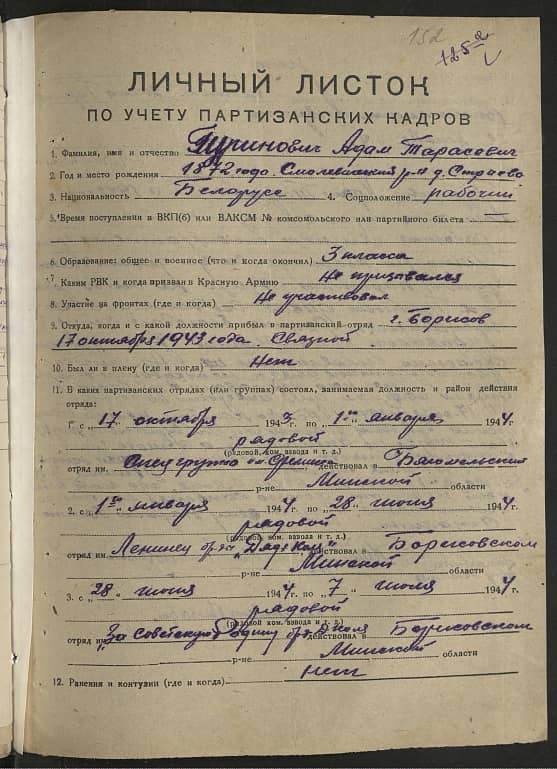 152
125-2
ЛИЧНЫЙ ЛИСТОК
ПО УЧЕТУ ПАРТИЗАНСКИХ КАДРОВ
1. Фамилия, имя и отчество Адам Тарасович
2. Год и место рождения 1872 года. Смолевичский р-н д.
3. Национальность Белорусс 4. Соцположение рабочий
5. Время поступления в ВКП(б) или ВЛКСМ № комсомольского или партийного билета —
6. Образование: общее и военное (что и когда окончил) 3 класса
7. Каким РВК и когда призван в Красную Армию Не призывался
8. Участие на фронтах (где и когда) Не участвовал
9. Откуда, когда и с какой должности прибыл в партизанский отряд г. Борисов
17 октября 1943 года. Связной
10. Был ли в плену (где и когда) Нет
11. В каких партизанских отрядах (или группах) состоял, занимаемая должность и район действия
отряда:
1. с „17" октября 1943 г. по „1го" января 1944 г.
рядовой
(рядовой, ком. взвода и т. д.)
отряд им. Спецгруппа действовал в Бегомльский
р-не Минской области
2. с „1го" января 1944 г. по „28" июня 1944 г.
рядовой
(рядовой, ком. взвода и т. д.)
отряд им. Ленинец бр-да "Дяди Коли" действовал в Борисовском
р-не Минской области
3. с „28" июня 1944 г. по „7" июля 1944 г.
рядовой
(рядовой ком. взвода и т. д.)
отряд им. "За Советскую Родину" бр. Д. Коля действовал в Борисовском
р-не Минской области
12. Ранения и контузии (где и когда) нет